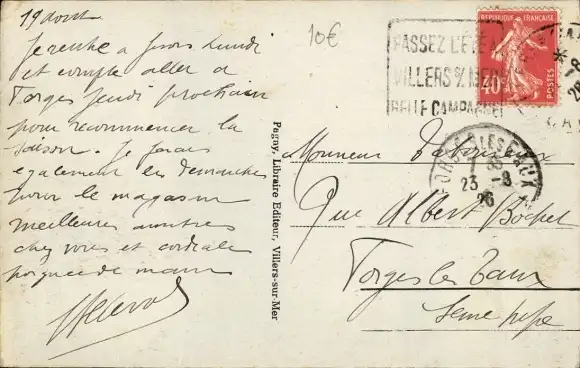 19 aout
Je rentre a Paris lundi
et compte aller a
Forges jeudi prochain
pour recommencer la
saison. Je ferais
egalement les demarches
pour le magasin
meilleures
chez vous et cordiale
poignee de main
10€
PASSEZ L'ÉTÉ A
VILLERS S/MER
BELLE CAMPAGNE
REPUBLIQUE FRANÇAISE
40c
POSTES
FORGES LES EAUX
23 -8
26
Pagny, Libraire Editeur, Villers-sur-Mer
Monsieur
Rue Albert Bochet
Forges les Eaux
Seine infre